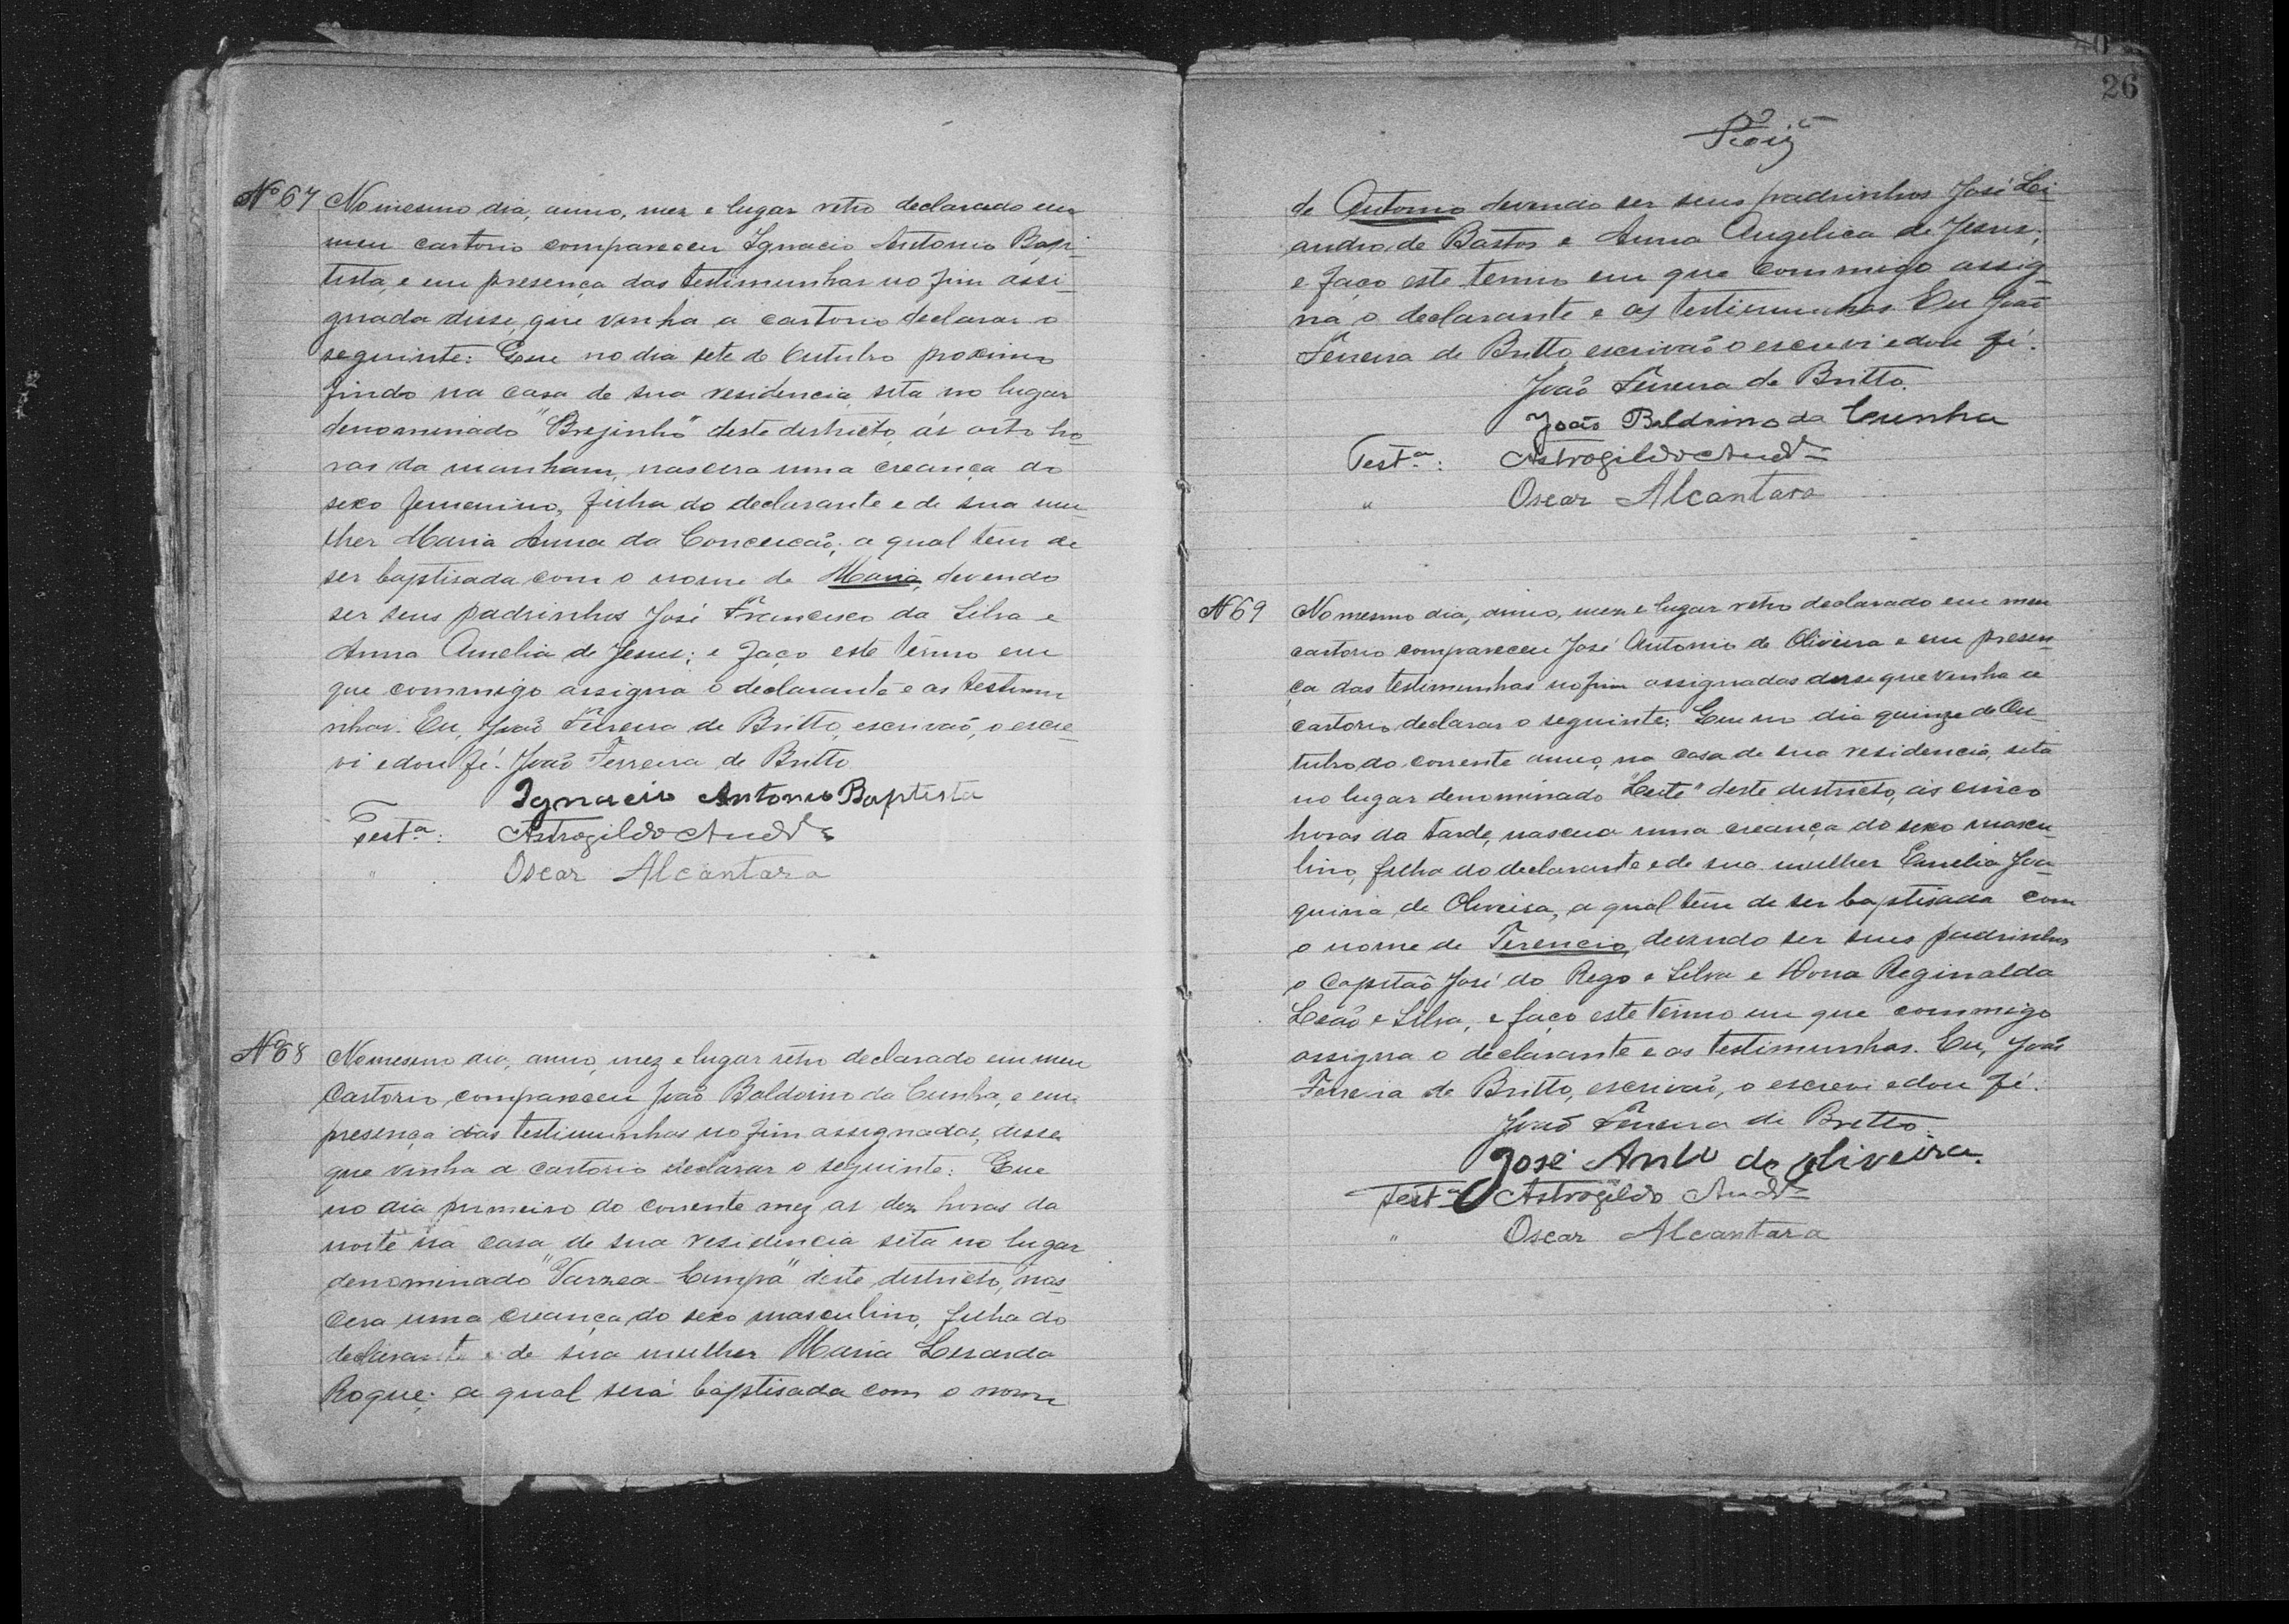 Nº 67 No mesmo dia, anno, mez e lugar retro declarado em
meu cartorio compareceu Ignacio Antonio Bap-
tista, e em presença das testimunhas no fim assi-
gnada disse, que vinha a cartorio declarar o
seguinte: Que no dia sete de Outubro proximo
findo na casa de sua residencia, sita no lugar
denominado "Brejinho" deste districto, ás oito ho-
ras da manham, nascera uma creança do
sexo femenino, filha do declarante e de sua mu-
lher Maria Anna da Conceicaõ; a qual tem de
ser baptisada com o nome de Maria, devendo
ser seus padrinhos José Francisco da Silva e
Anna Amelia de Jesus; e faço este têrmo em
que commigo assigna o declarante e as testimu
nhas. Eu, Joaõ Ferreira de Britto, escrivaõ, o escre-
vi e dou fé. Joaõ Ferreira de Britto
Ignacio Antonio Baptista
Testª: Astrogildo Andr
" Oscar Alcantara
Nº 68 No mesmo dia, anno, mez e lugar retro declarado em meu
Cartorio, compareceu Joaõ Baldoino da Cunha, e em
presença das testimunhas no fim assignadas, disse
que vinha a cartorio declarar o seguinte: Que
no dia primeiro do corrente mez as dez horas da
noite na casa de sua residencia sita no lugar
denominado "Varzea Cumpa" deste districto, nas-
cera uma creança do sexo masculino, filha do
declarante e de sua mulher Maria
Roque; a qual será baptisada com o nome
26
de Antonio devendo ser seus padrinhos José Le-
andro de Bastos e Anna Angelica de Jesus;
e faço este termo em que commigo assig-
na o declarante e as testimunhas. Eu Joaõ
Ferreira de Britto, escrivaõ o escrevi e dou fé.
Joaõ Ferreira de Britto.
Joaõ Baldoino da Cunha
Testª: Astrogildo Andr
" Oscar Alcantara
Nº 69 No mesmo dia, anno, mez e lugar retro declarado em meu
cartorio compareceu José Antonio de Oliveira e em presen-
ça das testimunhas no fim assignadas disse que vinha a
cartorio declarar o seguinte: Que no dia quinze de Ou-
tubro do corrente anno, na casa de sua residencia, sita
no lugar denominado deste districto, ás cinco
horas da tarde, nascera uma creança do sexo mascu-
lino, filha do declarante e de sua mulher Emelia Joa-
quina de Oliveira, a qual tem de ser baptisada com
o nome de Terencio, devendo ser seus padrinhos
o Capitaõ José do Rego e Silva e Dona Reginalda
Leaõ e Silva, e faço este têrmo em que commigo
assigna o declarante e as testimunhas. Eu, Joaõ
Ferreira de Britto, escrivaõ, o escrevi e dou fé.
Joaõ Ferreira de Britto.
José Antº de Oliveira.
Testª Astrogildo Andr
" Oscar Alcantara